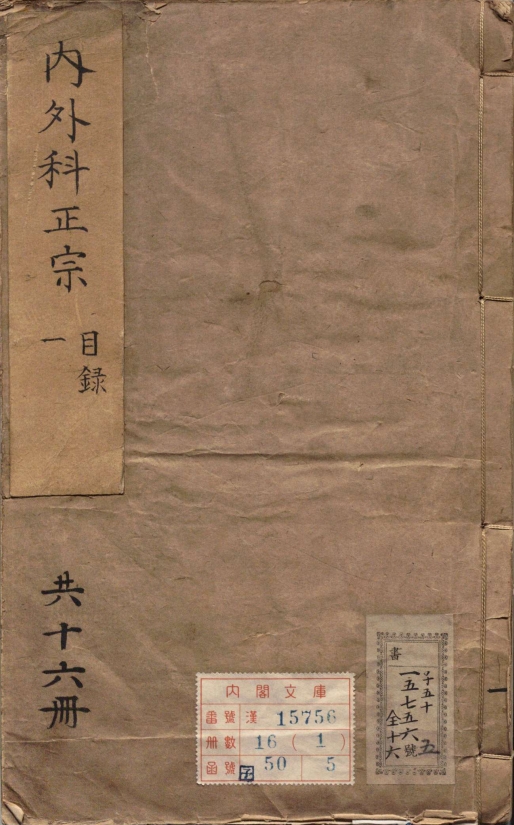 内外科正宗
目録
一
共十六冊
内閣文庫
書號 漢 15756
冊數 16 ( 1 )
函號 子 50 5
書
子五十
一五七五六號
全十六
五
一